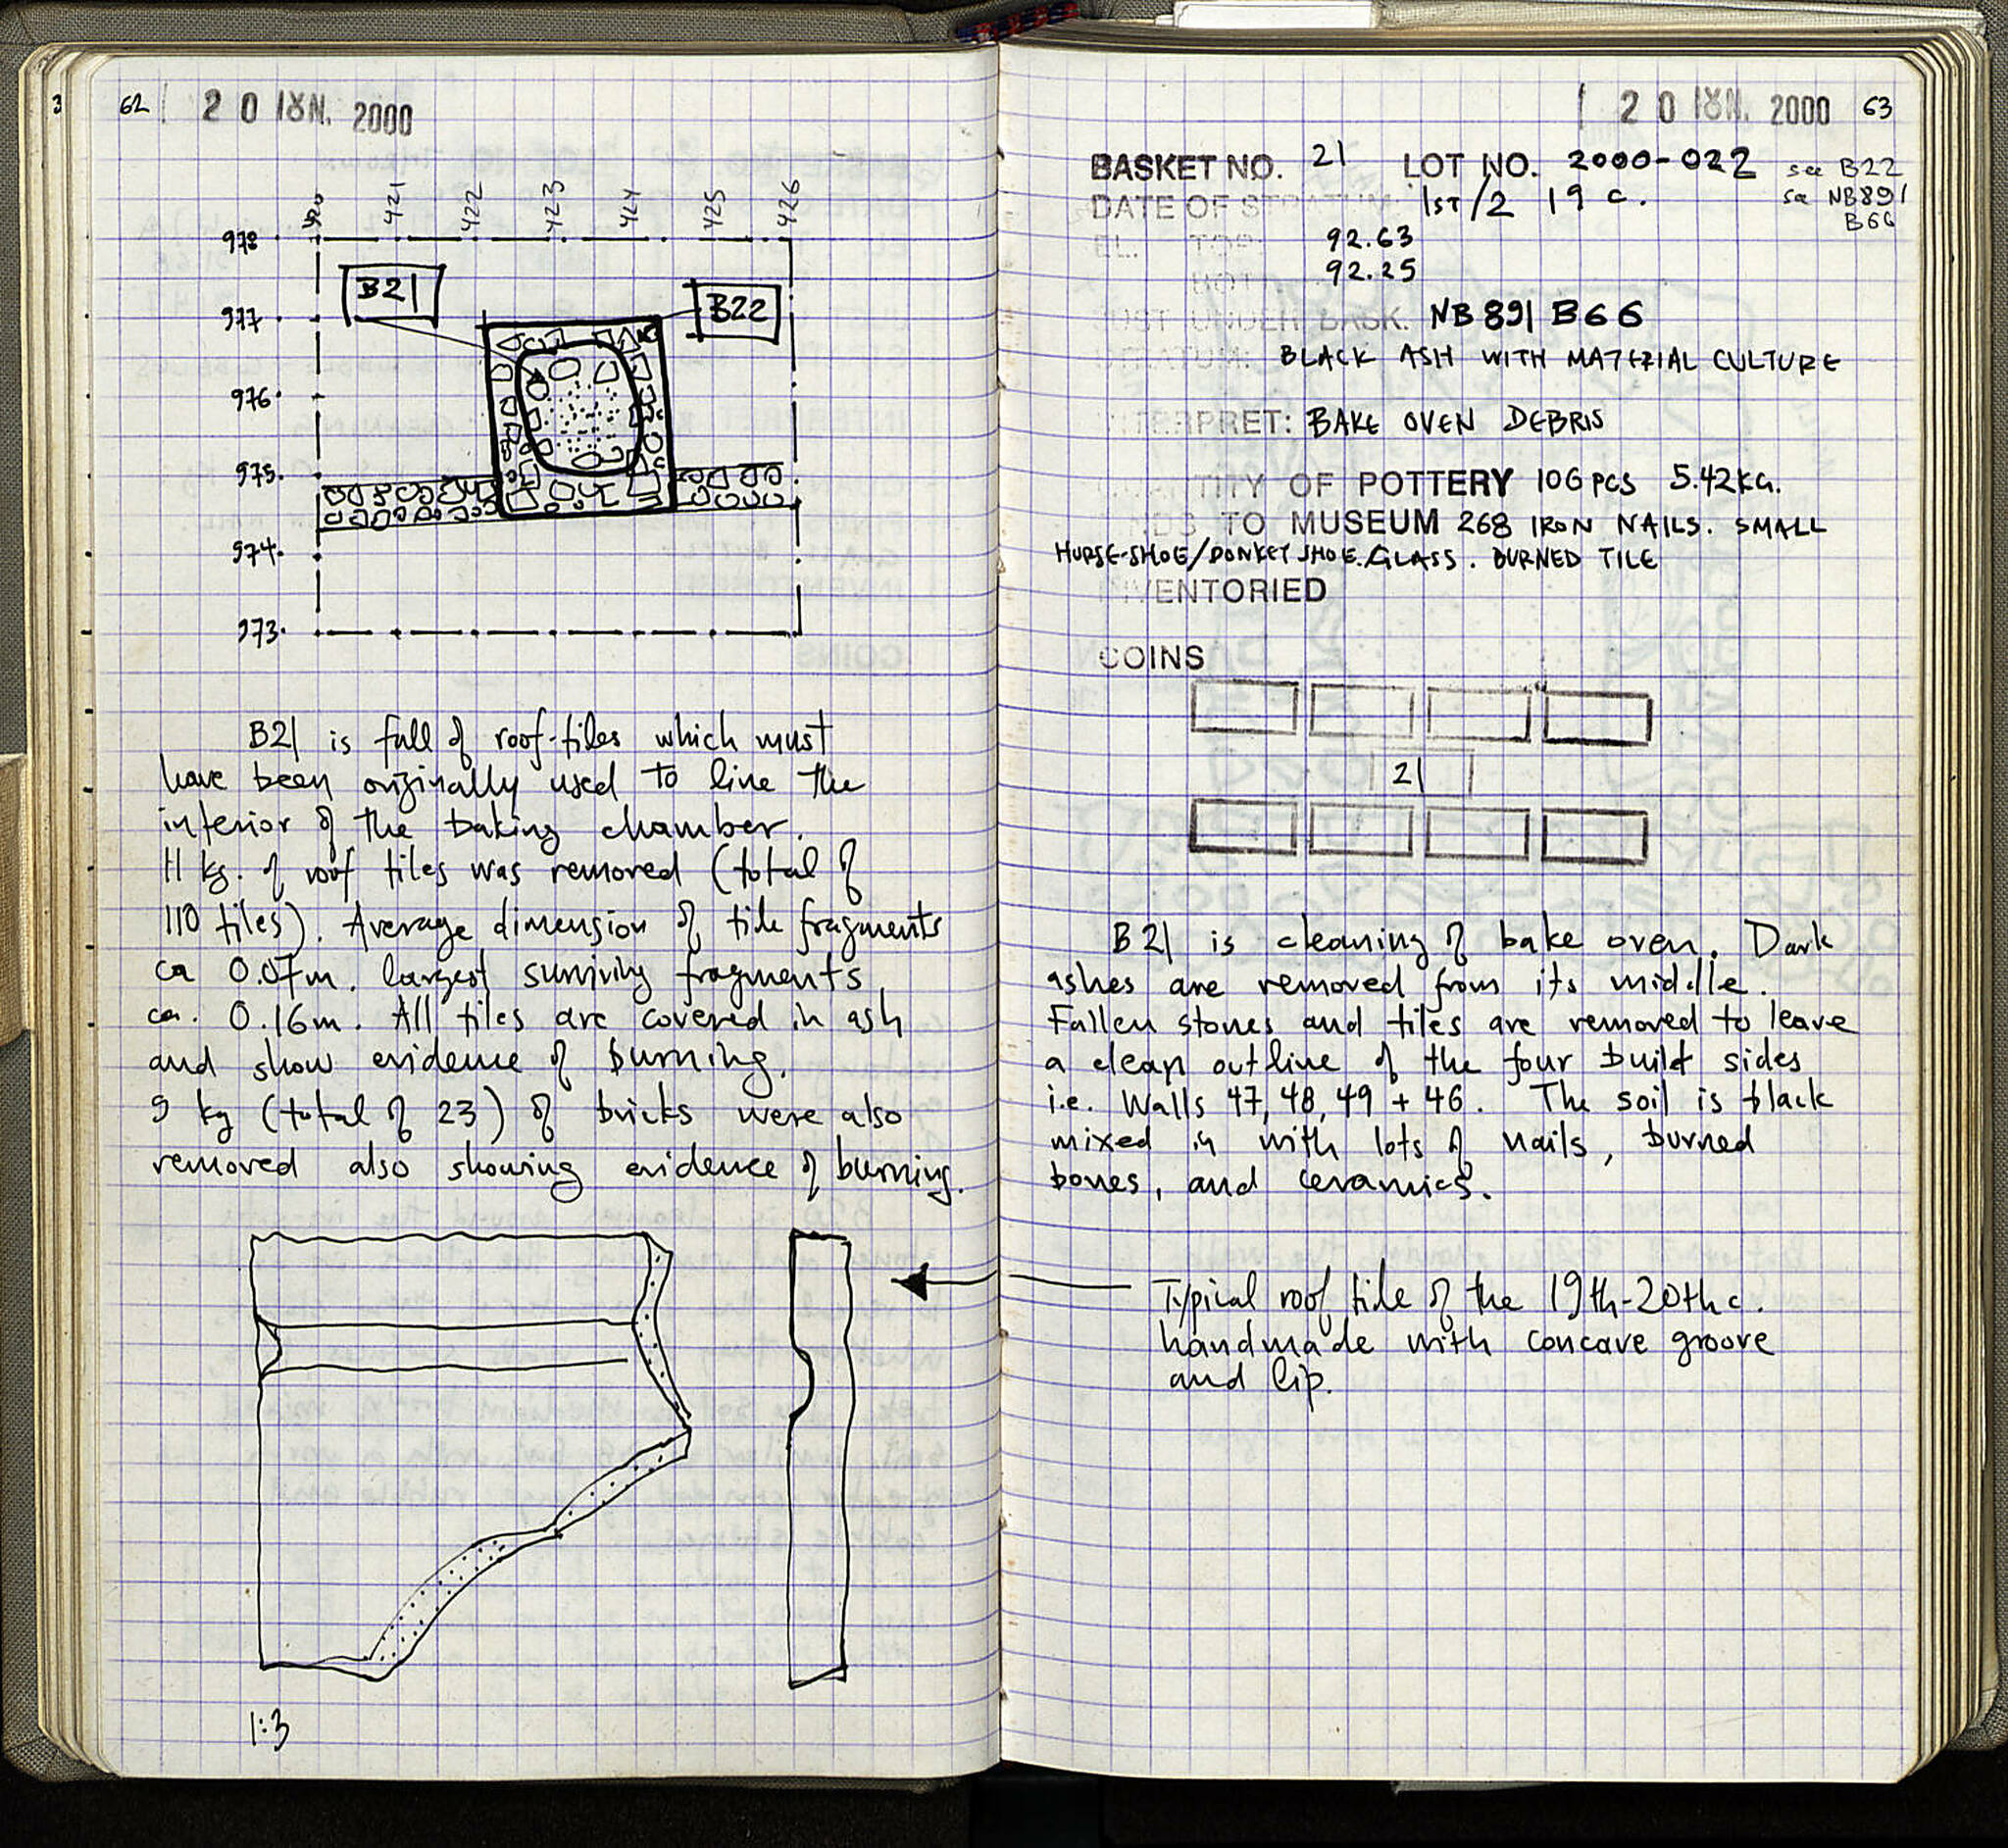 3
62 20 ΙΟΥΝ. 2000
420 421 422 423 424 425 426
978
B21
977
B22
976
975
974
973
B21 is full of roof-tiles which must
have been originally used to line the
interior of the baking chamber.
11 kg. of roof tiles was removed (total of
110 tiles). Average dimension of tile fragments
ca 0.07m. largest surviving fragments
ca. 0.16m. All tiles are covered in ash
and show evidence of burning.
9 kg (total of 23) of bricks were also
removed also showing evidence of burning.
1:3
20 ΙΟΥΝ. 2000 63
BASKET NO. 21 LOT NO. 2000-022 see B22
DATE OF STRATUM: 1ST/2 19 c. see NB891
B66
EL. TOP: 92.63
BOTT 92.25
JUST UNDER BASK. NB891 B66
STRATUM: BLACK ASH WITH MATERIAL CULTURE
INTERPRET: BAKE OVEN DEBRIS
QUANTITY OF POTTERY 106 PCS 5.42KG.
FINDS TO MUSEUM 268 IRON NAILS. SMALL
HORSE-SHOE/DONKEY SHOE. GLASS. BURNED TILE
INVENTORIED
COINS
21
B21 is cleaning of bake oven. Dark
ashes are removed from its middle.
Fallen stones and tiles are removed to leave
a clean outline of the four build sides
i.e. Walls 47, 48, 49 + 46. The soil is black
mixed in with lots of nails, burned
bones, and ceramics.
Typical roof tile of the 19th-20th c.
handmade with concave groove
and lip.